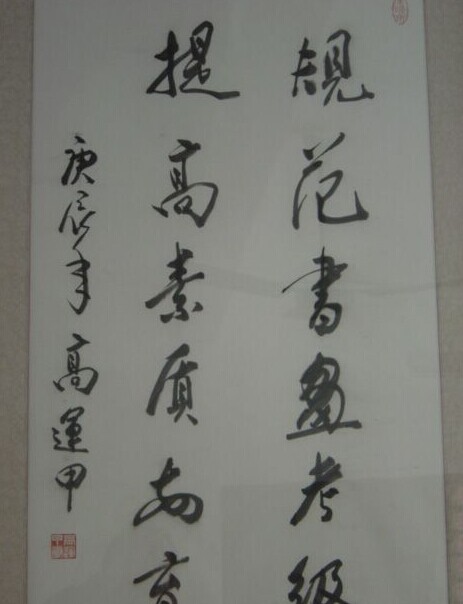 規范書畫考級
提高素質教育
庚辰年 高運甲